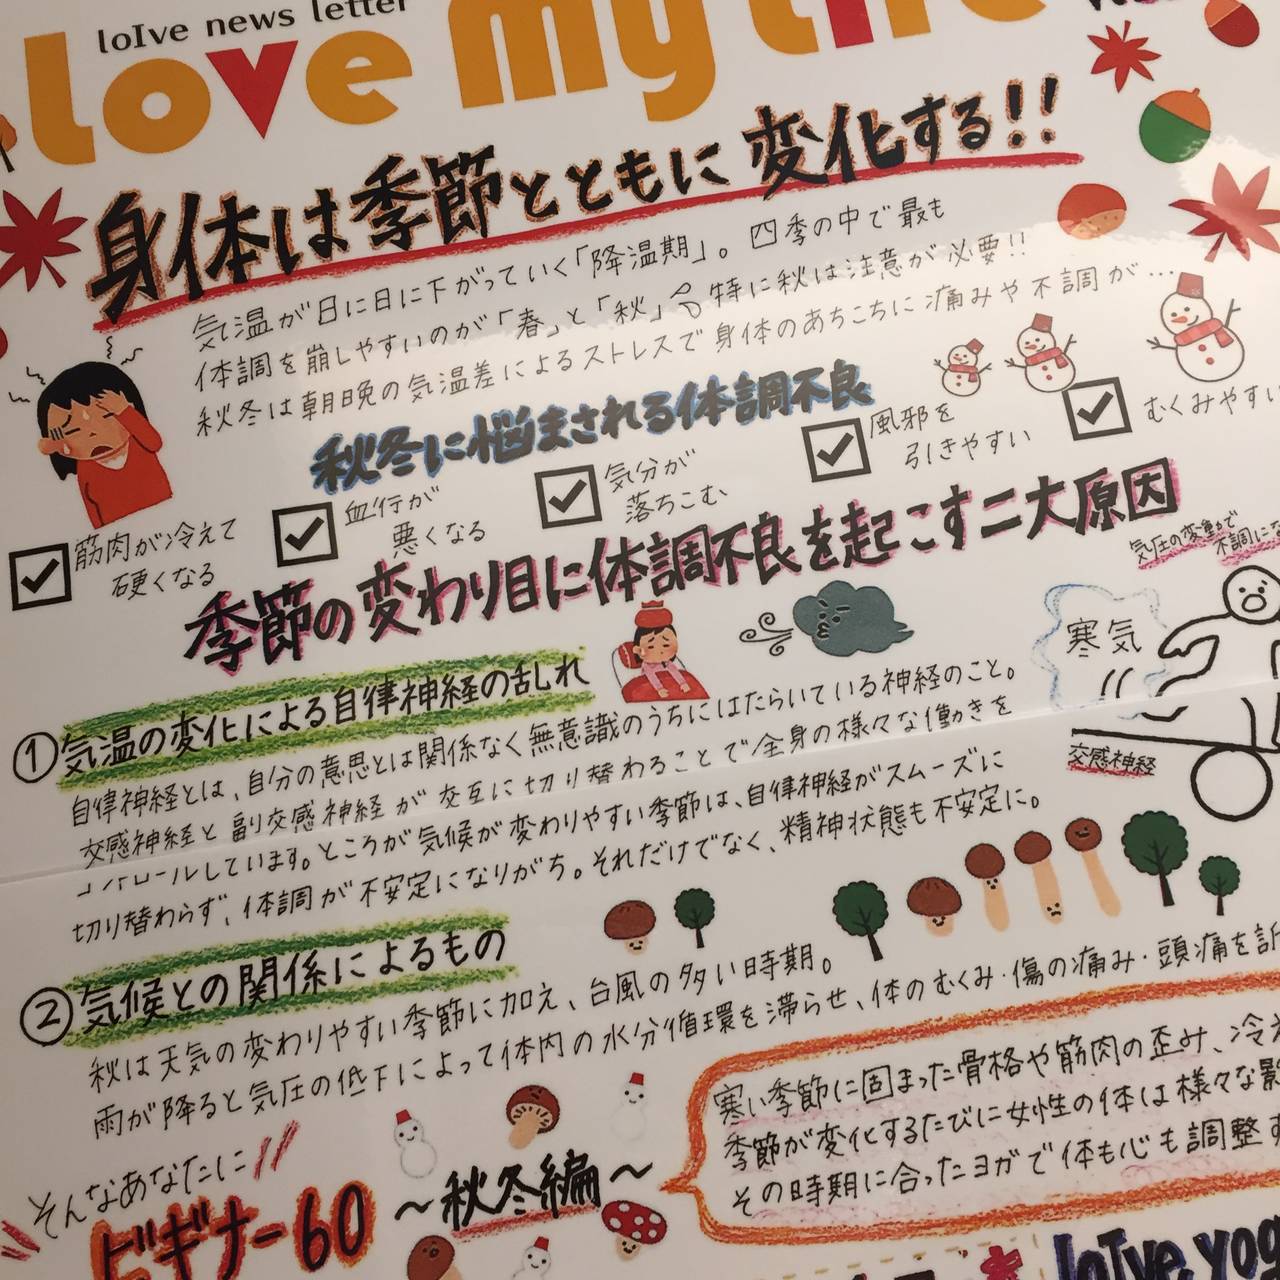 loIve news letter
Love My Life
身体は季節とともに変化する!!
気温が日に日に下がっていく「降温期」。四季の中で最も
体調を崩しやすいのが「春」と「秋」 特に秋は注意が必要!!
秋冬は朝晩の気温差によるストレスで身体のあちこちに痛みや不調が…
秋冬に悩まされる体調不良
筋肉が冷えて
硬くなる
血行が
悪くなる
気分が
落ちこむ
風邪を
引きやすい
むくみやすい
季節の変わり目に体調不良を起こす二大原因
気圧の変動で
不調にな
寒気
交感神経
①気温の変化による自律神経の乱れ
自律神経とは、自分の意思とは関係なく無意識のうちにはたらいている神経のこと。
交感神経と副交感神経が交互に切り替わることで全身の様々な働きを
コントロールしています。ところが気候が変わりやすい季節は、自律神経がスムーズに
切り替わらず、体調が不安定になりがち。それだけでなく、精神状態も不安定に。
②気候との関係によるもの
秋は天気の変わりやすい季節に加え、台風の多い時期。
雨が降ると気圧の低下によって体内の水分循環を滞らせ、体のむくみ・傷の痛み・頭痛を訴
そんなあなたに
ビギナー60
～秋冬編～
寒い季節に固まった骨格や筋肉の歪み、冷え
季節が変化するたびに女性の体は様々な影
その時期に合ったヨガで体も心も調整す
loIve yog